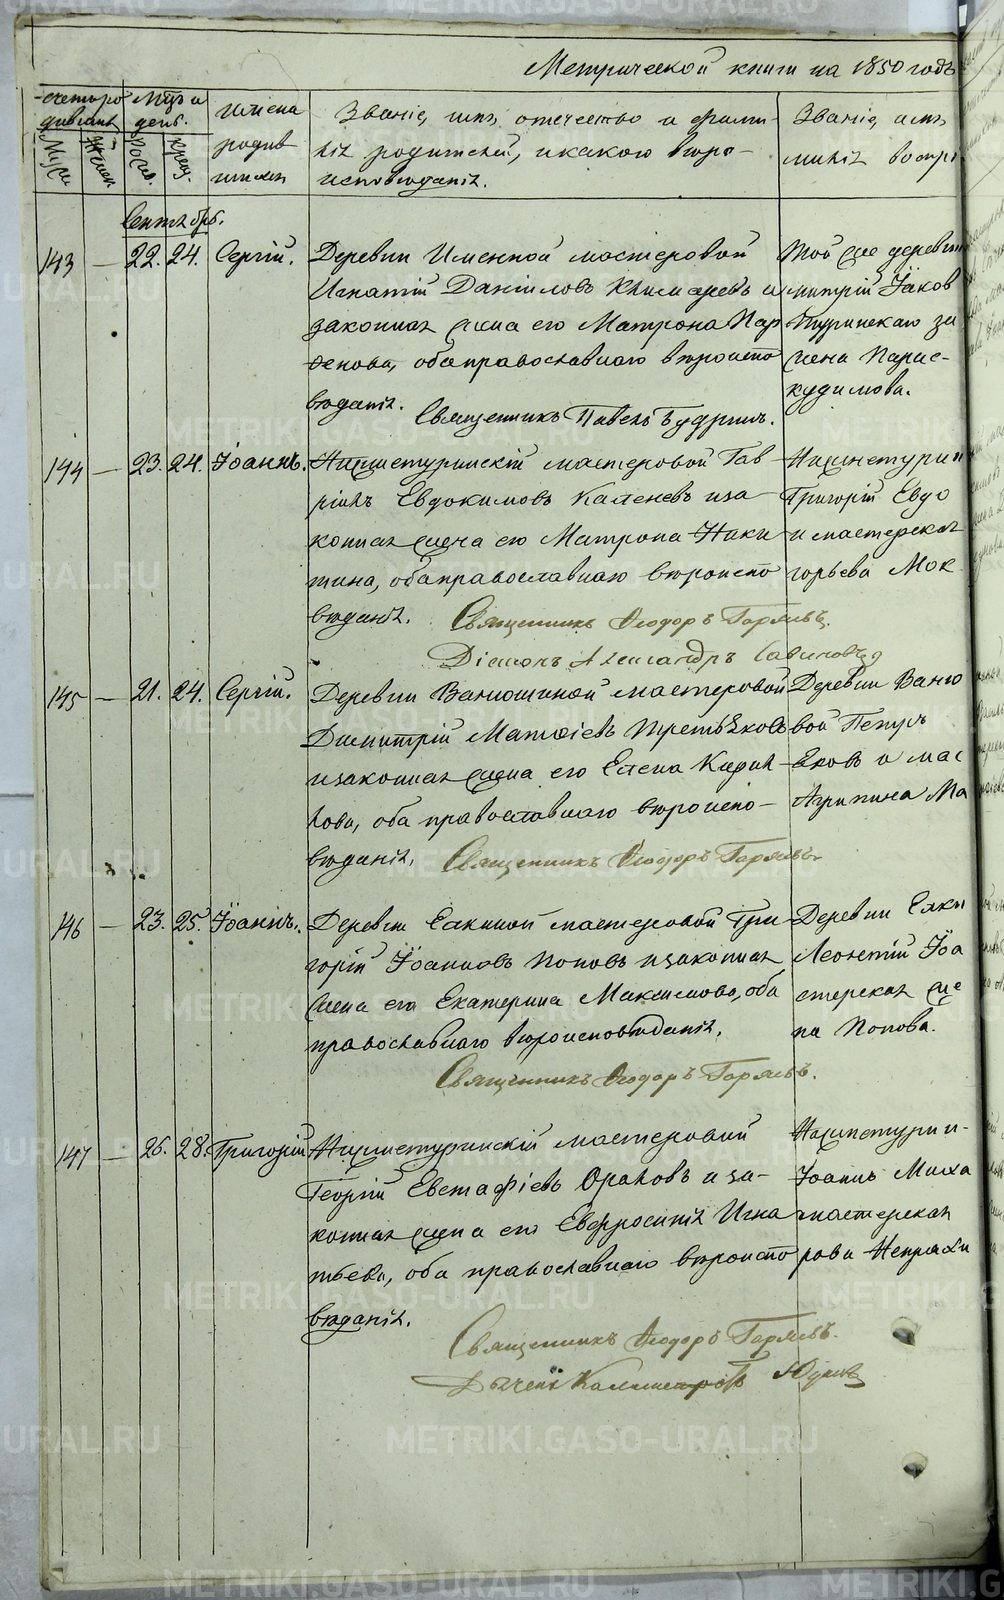 Метрической книги на 1850 годъ
Счетъ родившихся
Мѣсяцъ и день.
Имена родившихся
Званіе, имя, отечество и фамилія родителей, и какого вѣроисповѣданія.
Званіе, имя
милія воспрі
Муж.
Женск.
Рожд.
Крещ.
Сентябрь.
143 — 22. 24. Сергій.
Деревни Именной мастеровой
Игнатій Даніиловъ и
законная жена его Матрона Пар
ѳенова, оба православнаго вѣроиспо
вѣданія.
Священникъ Павелъ Будринъ.
Той же деревни
митрій Іаков
Туринскаго за
жена Парас-
кудимова.
144 — 23. 24. Іоаннъ.
Нижнетуринскій мастеровой Гав
ріилъ Евдокимовъ Каменевъ и за
конная жена его Матрона Ники
тина, оба православнаго вѣроиспо
вѣданія.
Священникъ Ѳеодоръ Горяевъ.
Діаконъ Александръ Савиновъ
Нижнетурин
Григорій Евдо
и мастерская
горьева Мок
145 — 21. 24. Сергій.
Деревни Ванюшиной мастеровой
Димитрій Матѳіевъ Третьяковъ
и законная жена его Елена Кирил
лова, оба православнаго вѣроиспо-
вѣданія.
Священникъ Ѳеодоръ Горяевъ.
Деревни Ваню
вой Петръ
яковъ и мас
Агрипина Ма
146 — 23. 25. Іоаннъ.
Деревни Елкиной мастеровой Гри
горій Іоанновъ Поповъ и законная
жена его Екатерина Максимова, оба
православнаго вѣроисповѣданія.
Священникъ Ѳеодоръ Горяевъ.
Деревни Елки
Леонтій Іоа
стерская же
на Попова.
147 — 26. 28. Григорій
Нижнетуринскій мастеровой
Георгій Евстафіевъ Ораловъ и за-
конная жена его Евфросинія Игна
тьева, оба православнаго вѣроиспо
вѣданія.
Священникъ Ѳеодоръ Горяевъ.
Дьячекъ Каллистратъ
Нижнетурин-
Іоаннъ Миха
мастерская
рова
METRIKI.GASO-URAL.RU